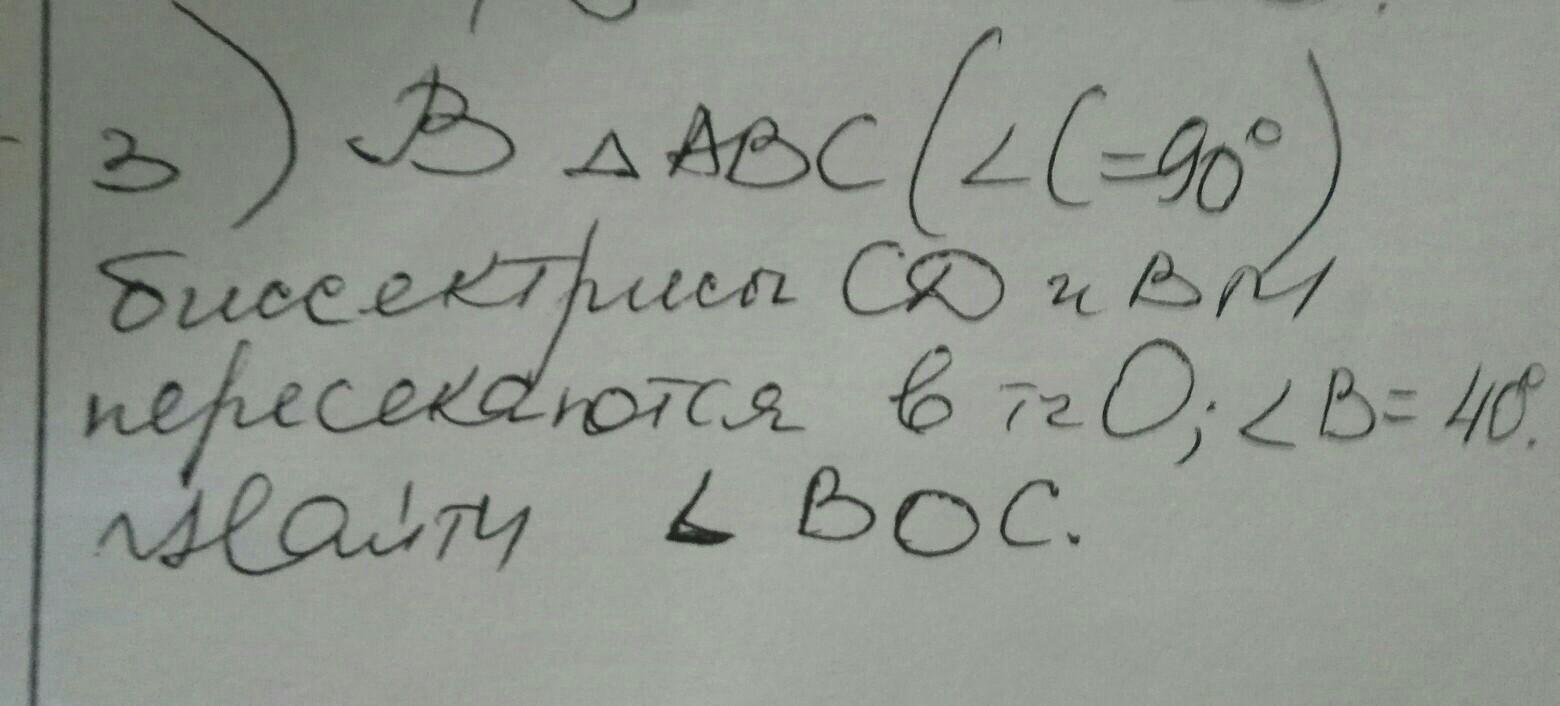 3) В △ ABC (∠C=90°)
биссектрисы СД и ВМ
пересекаются в тч О; ∠B= 40°.
Найти ∠ BOC.